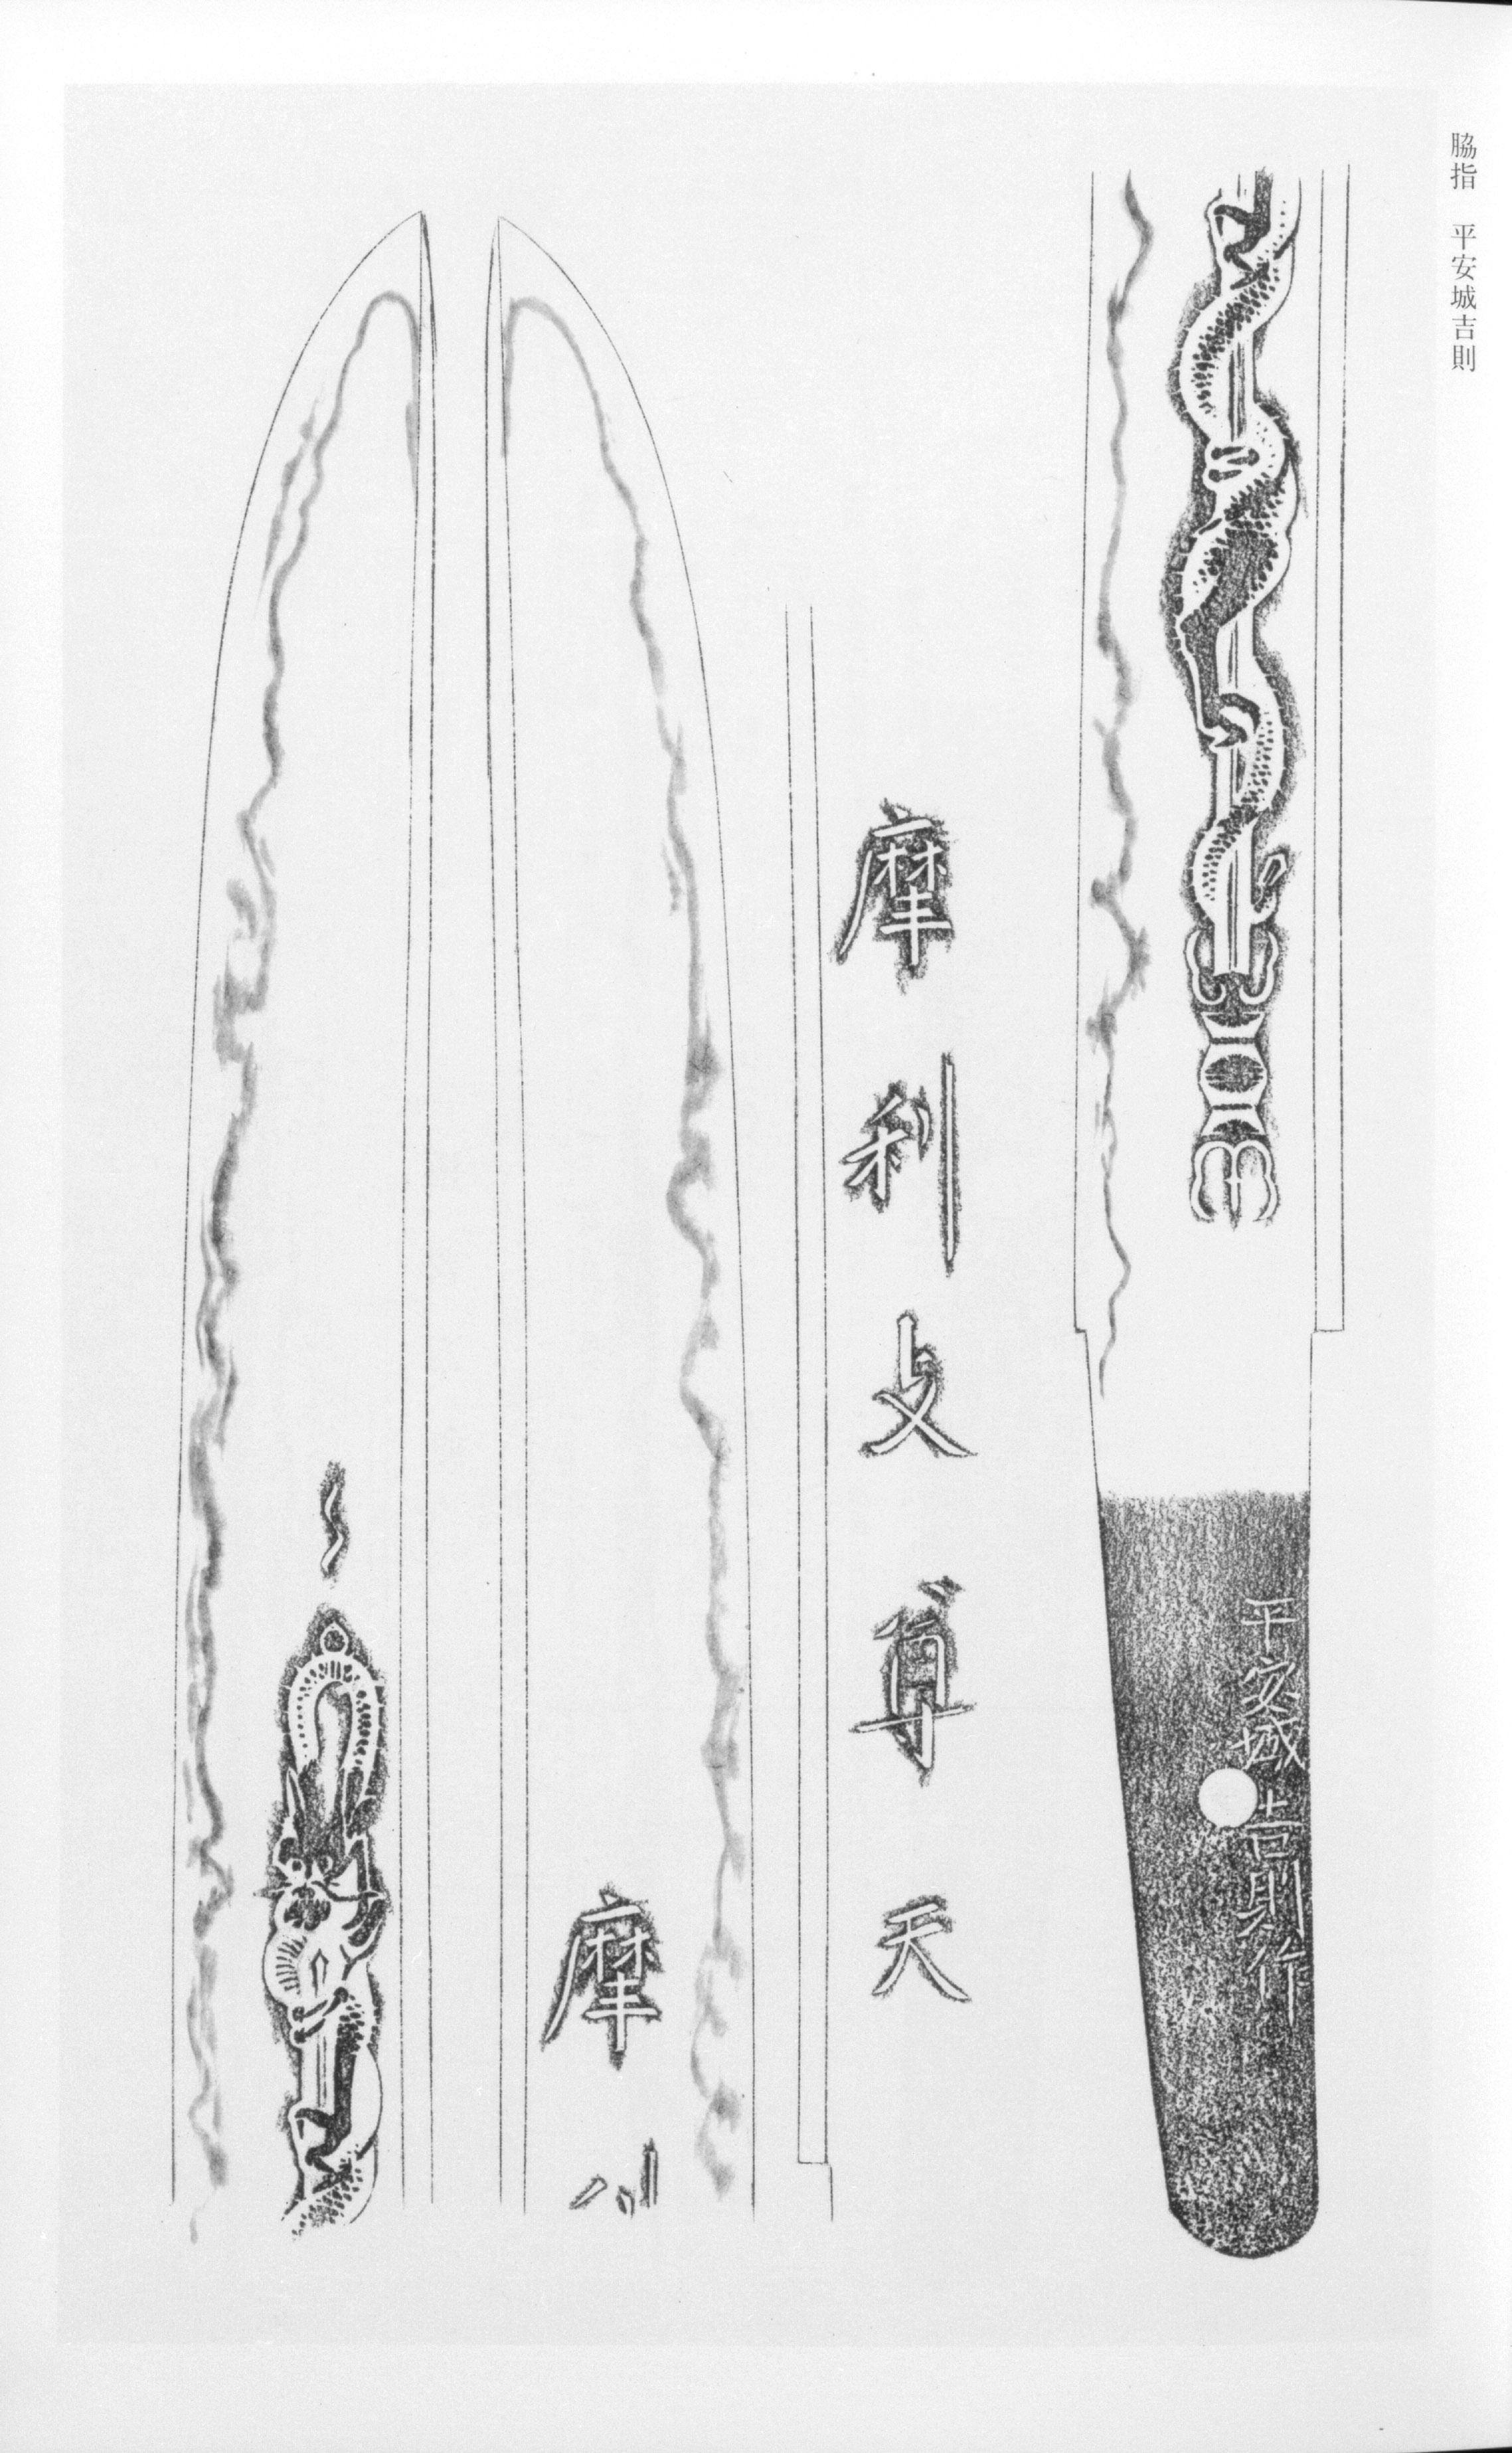 脇指 平安城吉則
平安城吉則作
摩利支尊天
摩